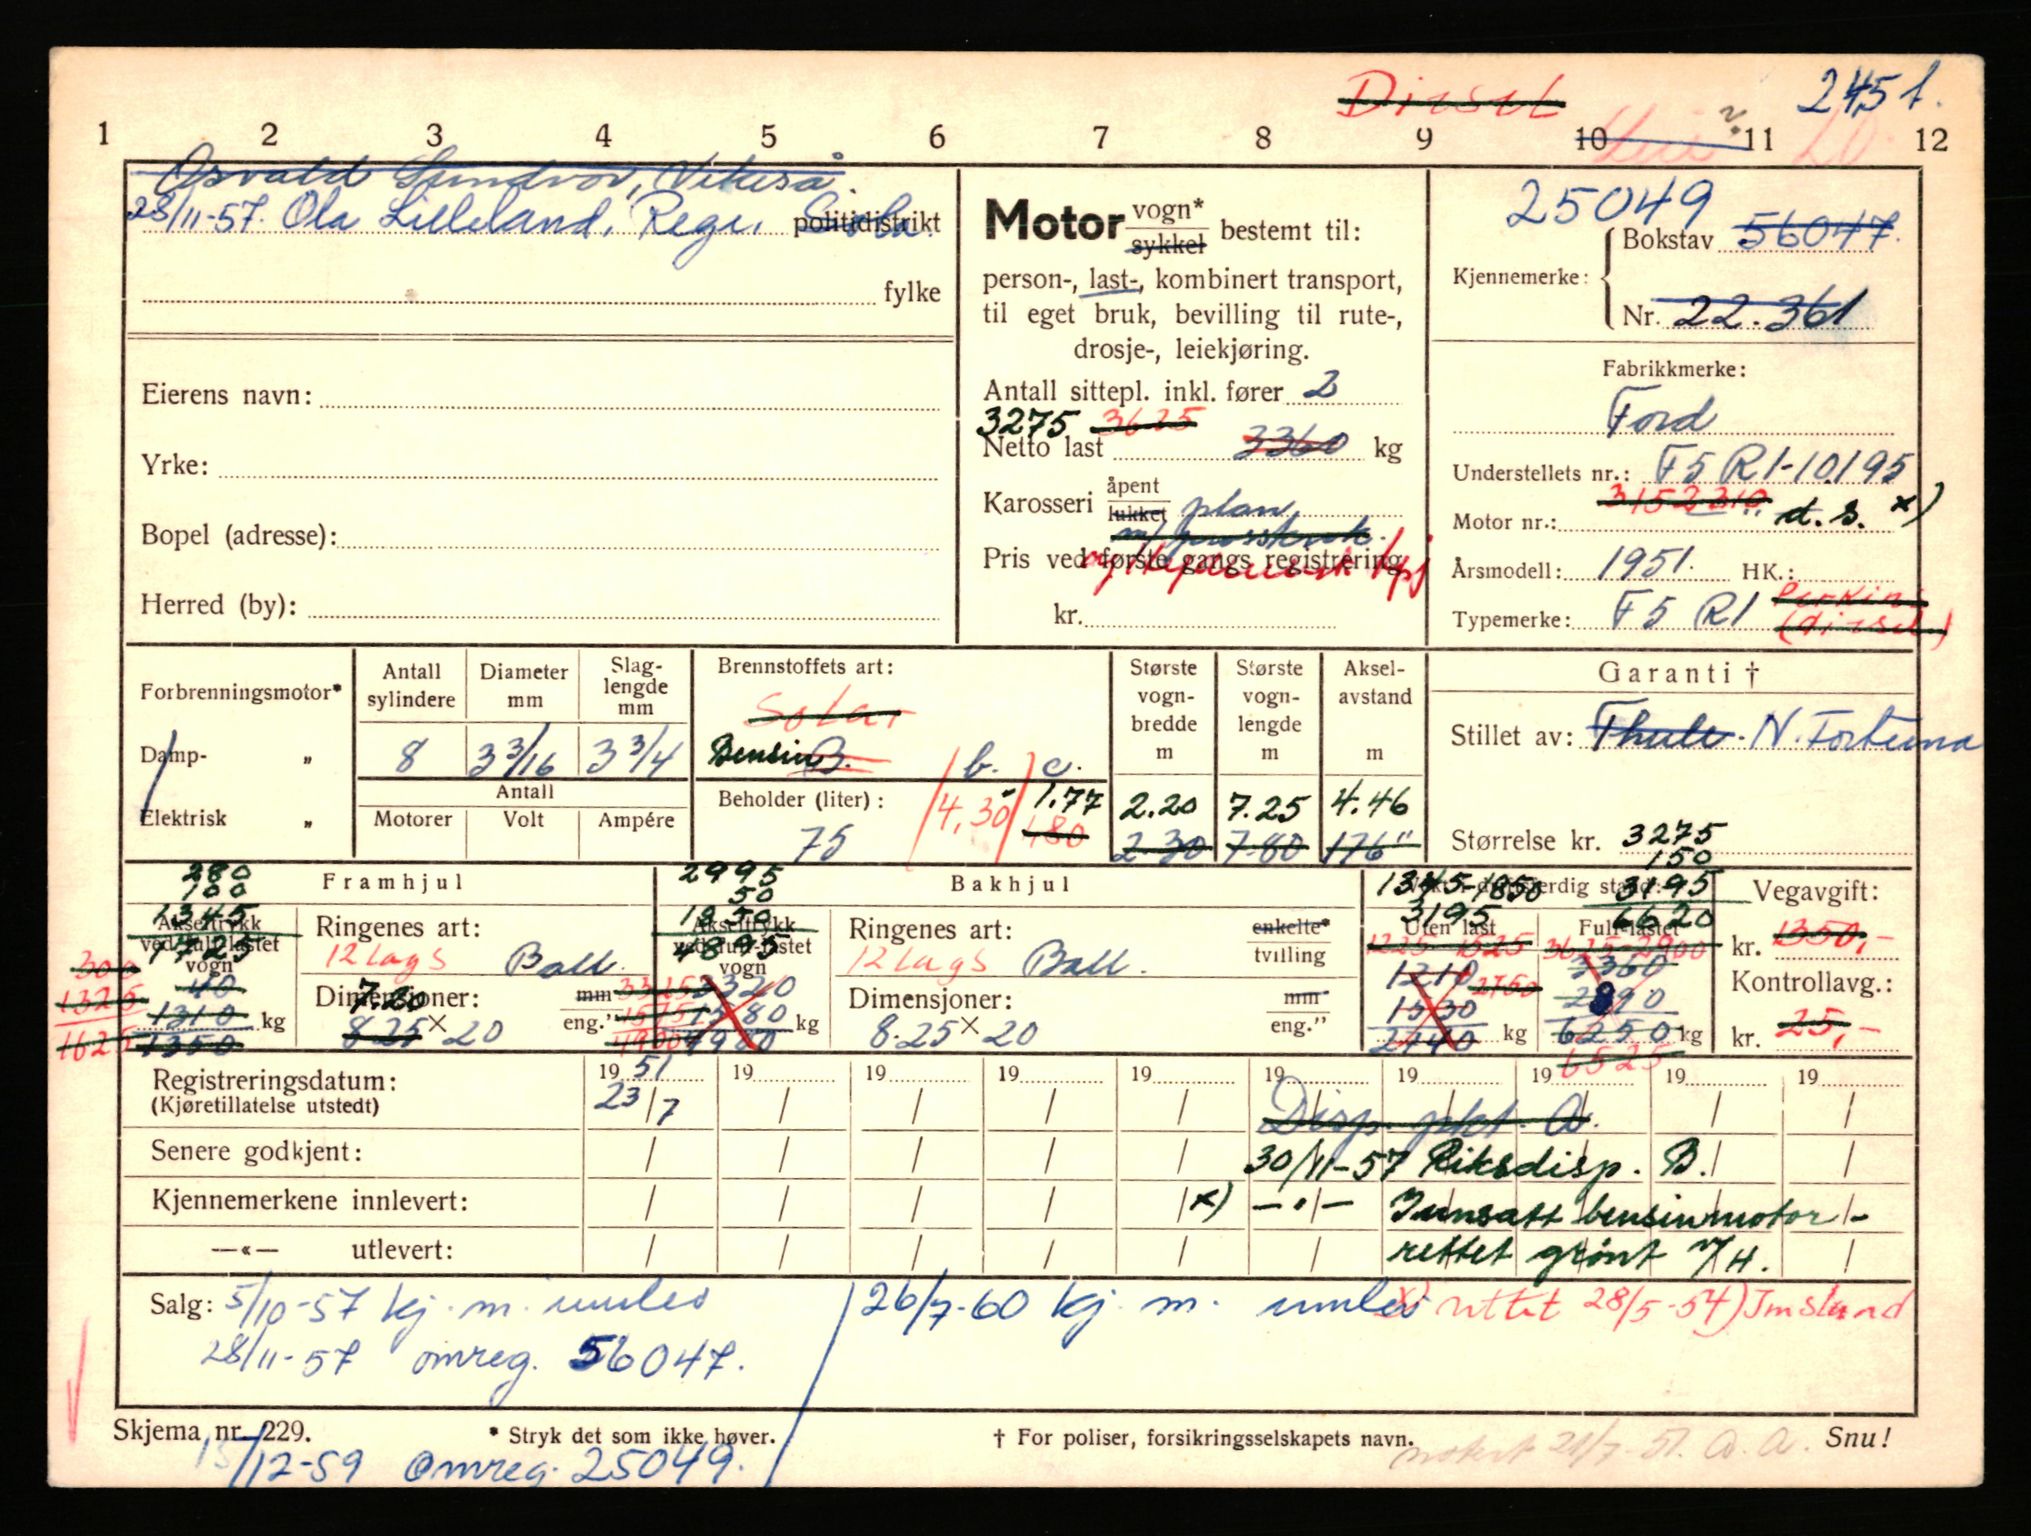 Diesel
2451.
1 2 3 4 5 6 7 8 9 10 11 12
Osvald Sundvor, Vikeså.
28/11-57. Ola Lilleland, Rege, Sola. politidistrikt
fylke
Eierens navn:
Yrke:
Bopel (adresse):
Herred (by):
Motor vogn* sykkel bestemt til:
person-, last-, kombinert transport,
til eget bruk, bevilling til rute-,
drosje-, leiekjøring.
Antall sittepl. inkl. fører 2
3275 3625
Netto last 3360 kg
Karosseri åpent lukket plan
Pris ved første gangs registrering
kr.
25049
Kjennemerke: Bokstav 56047.
Nr. 22.361
Fabrikkmerke:
Ford
Understellets nr.: F5 R1-10195
3152310
Motor nr.: d.s. x)
Årsmodell: 1951. HK.:
Typemerke: F5 R1 Perkins
(diesel)
Forbrenningsmotor*
Damp- „
Elektrisk „
Antall sylindere
Diameter mm
Slag-lengde mm
8 3 3/16 3 3/4
Antall
Motorer Volt Ampére
Brennstoffets art:
Solar
Bensin B. b. c.
Beholder (liter):
75 4.30 1.77
180
Største vogn-bredde m
Største vogn-lengde m
Aksel-avstand m
2.20 7.25 4.46
2.30 7.80 176"
Garanti †
Stillet av: Thule. N. Fortuna
Størrelse kr. 3275
150
3195
6620
Framhjul
280
100
1345
1725
Akseltrykk ved full-lastet vogn
300
1325
1625
40
1310 kg
1350
Ringenes art:
12 lags Ball.
Dimensjoner: mm
7.20 eng."
8.25 x 20
Bakhjul
2995
50
1850
4895
Akseltrykk ved full-lastet vogn
3325 3320
1575 1580 kg
4900 4980
Ringenes art: enkelte*
12 lags Ball. tvilling
Dimensjoner: mm
8.25 x 20 eng."
1345-1850
3195
Uten last Full-lastet
1225 1525 3625-2900
1210 2750 3360
1530 2890
2740 kg 6250 kg
6525
Vegavgift:
kr. 1350,-
Kontrollavg.:
kr. 25,-
Registreringsdatum: 1951 19 19 19 19 19 19 19 19 19
(Kjøretillatelse utstedt) 23/7
Disp. pkt. A.
Senere godkjent: 30/11-57 Riksdisp. B.
Kjennemerkene innlevert: x) —"— Innsatt bensinmotor -
—«— utlevert: rettet grønt
Salg: 5/10-57 kj. m. innlev 26/7-60 kj. m. innlev x) rettet 28/5-54) Imsland
28/11-57 omreg. 56047.
Skjema nr. 229. * Stryk det som ikke høver. † For poliser, forsikringsselskapets navn. Snu!
15/12-59 omreg. 25049. notert 21/7-51. A. A.